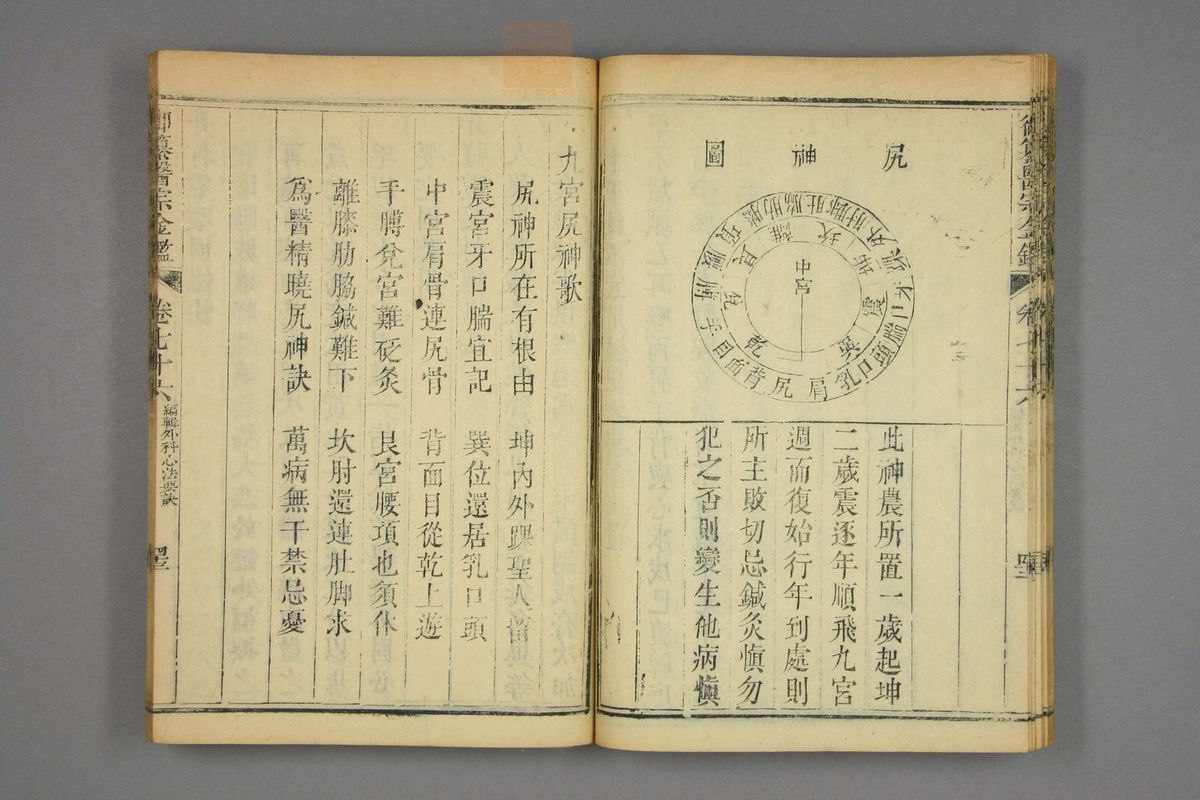 尻神圖
中宮
離
坎
震
巽
乾
兌
艮
膝肋脇
牙口腨
乳口頭
肩尻
背面目
手膊
腰項
此神農所置一歲起坤
二歲震逐年順飛九宮
週而復始行年到處則
所主敗切忌鍼灸慎勿
犯之否則變生他病慎
九宮尻神歌
尻神所在有根由 坤內外踝聖人留
震宮牙口腨宜記 巽位還居乳口頭
中宮肩骨連尻骨 背面目從乾上遊
手膊兌宮難砭灸 艮宮腰項也須休
離膝肋脇鍼難下 坎肘還連肚脚求
爲醫精曉尻神訣 萬病無干禁忌憂
御纂醫宗金鑑 卷七十六 編輯外科心法要訣